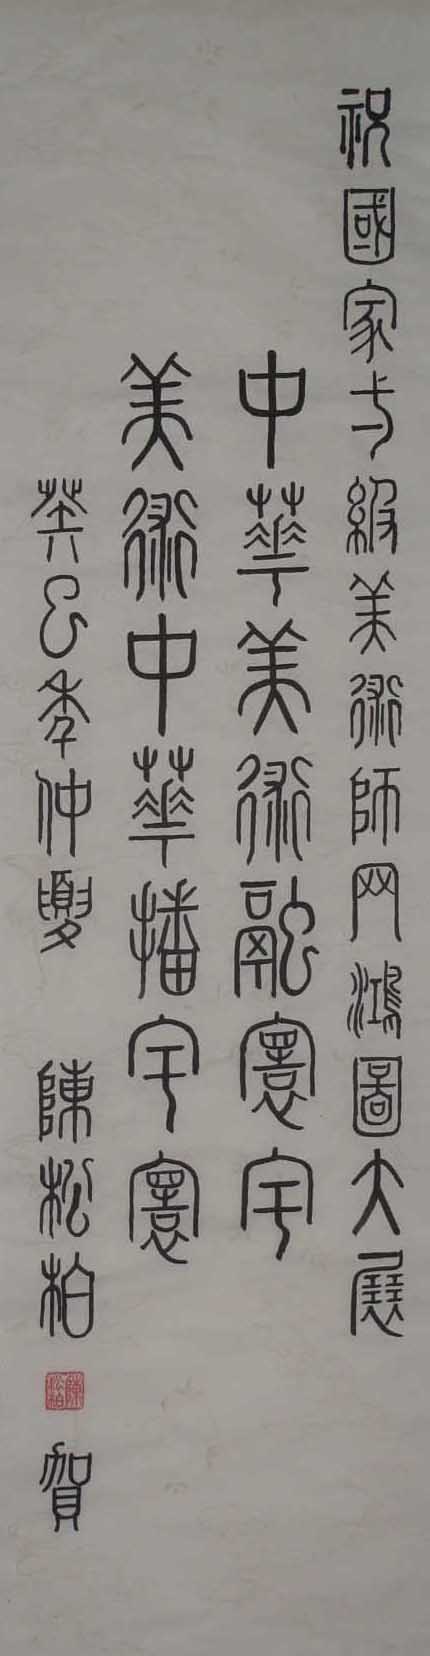 祝國家方級美術師网鴻圖大展
中華美術融寰宇
美術中華播宇寰
癸巳季仲夏 陳松柏
陳松柏
賀